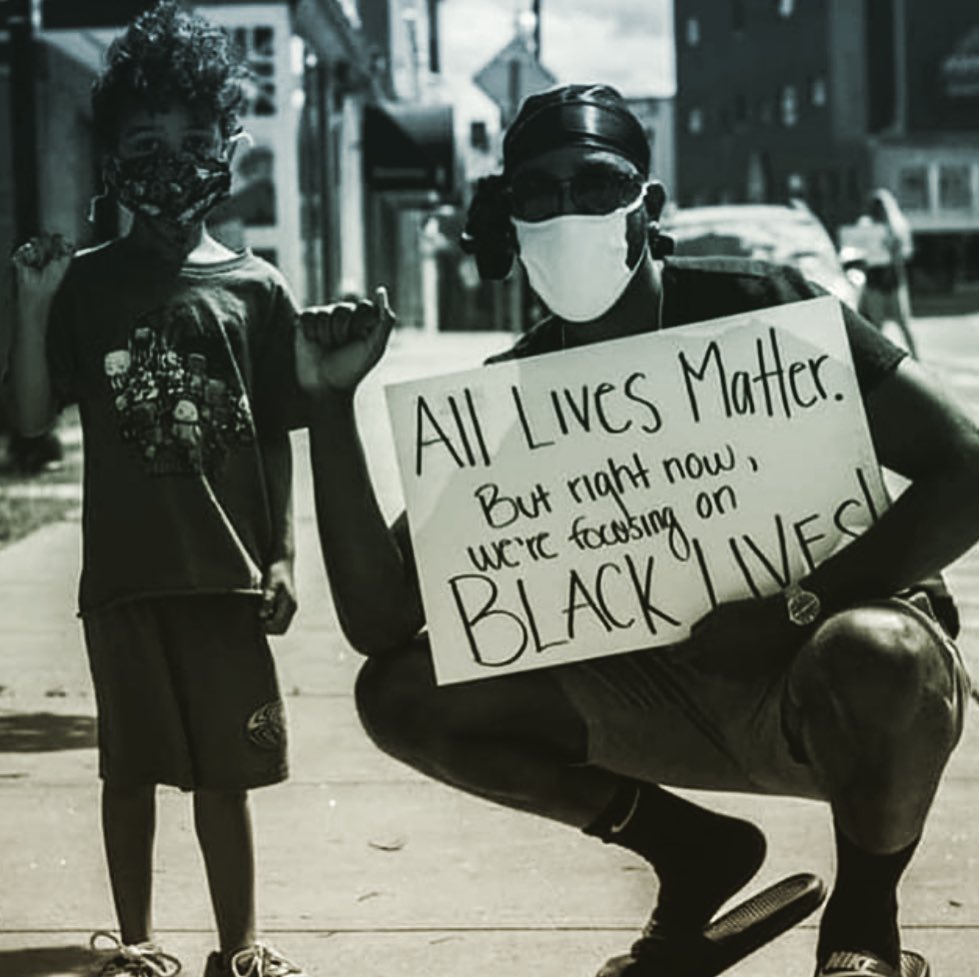 All Lives Matter.
But right now,
we're focusing on
BLACK LIVES!
NIKE